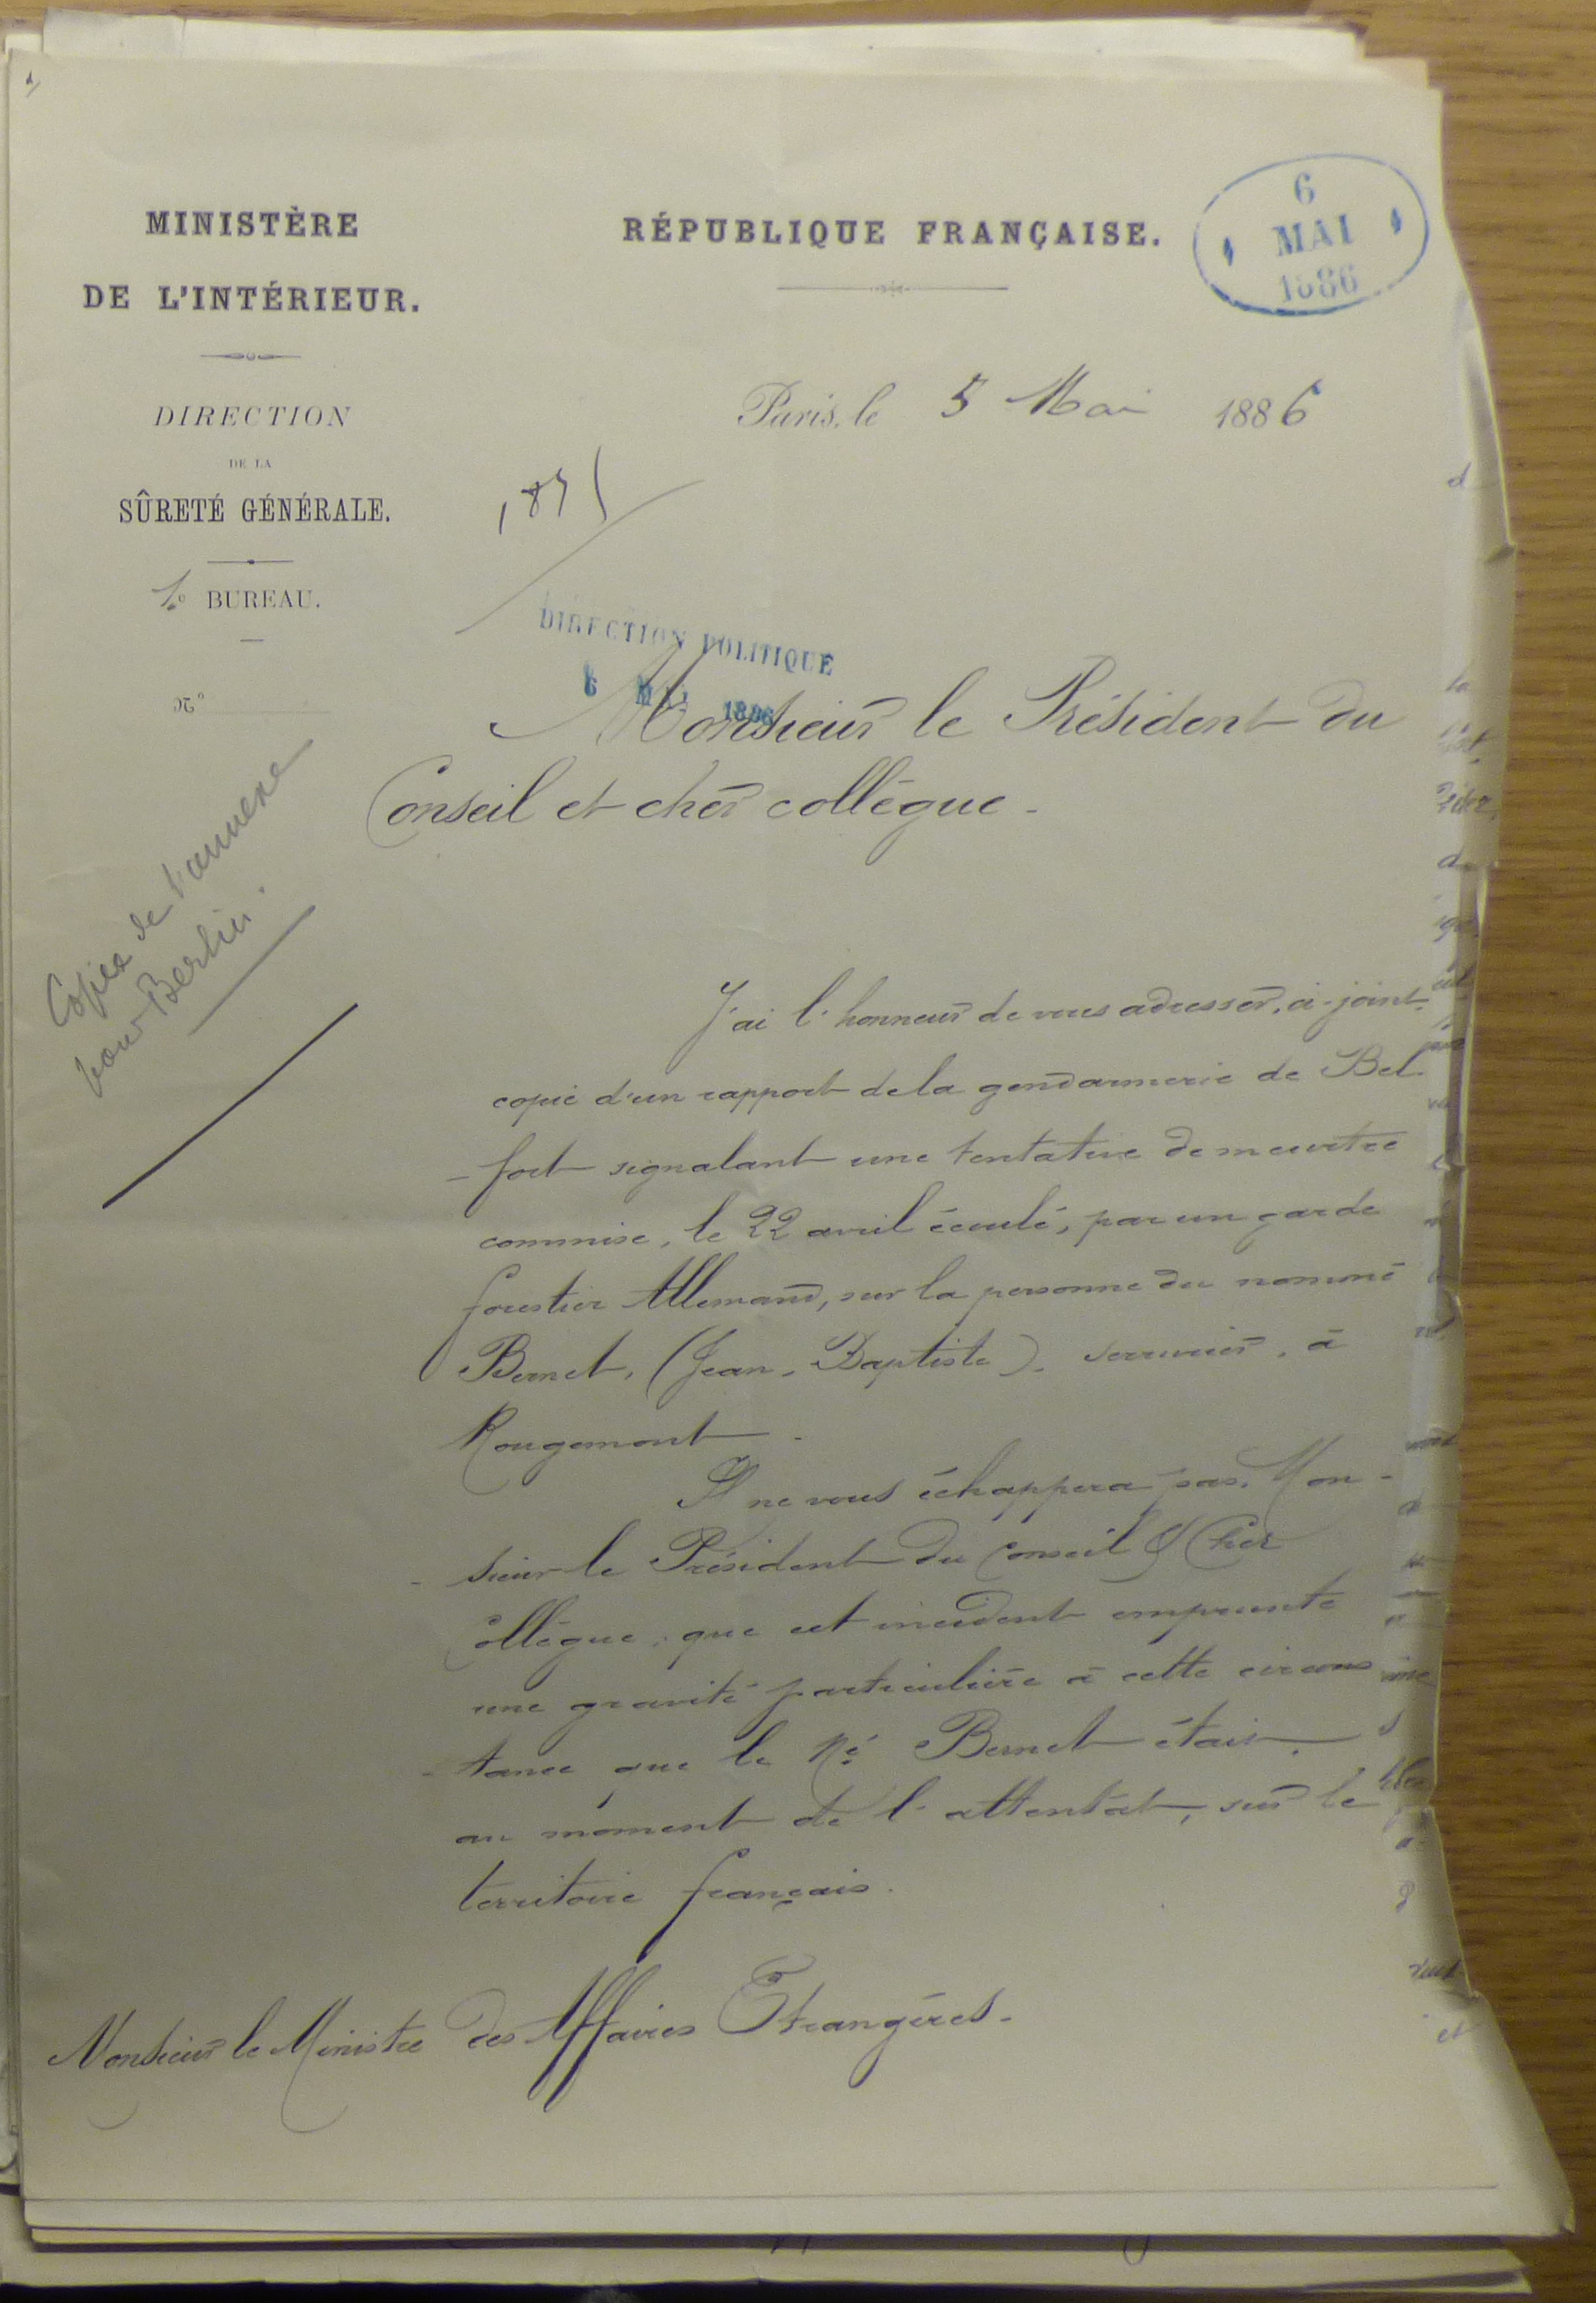 MINISTÈRE
DE L'INTÉRIEUR.
DIRECTION
DE LA
SÛRETÉ GÉNÉRALE.
1º BUREAU.
Nº
RÉPUBLIQUE FRANÇAISE.
6
MAI
1886
Paris, le 5 Mai 1886
DIRECTION POLITIQUE
6 MAI 1886
Copies de l'annexe
pour Berlin.
Monsieur le Président du
Conseil et cher collègue -
J'ai l'honneur de vous adresser, ci-joint,
copie d'un rapport de la gendarmerie de Bel-
-fort signalant une tentative de meurtre
commise, le 22 avril écoulé, par un garde
forestier Allemand, sur la personne du nommé
Bernet, (Jean-Baptiste), serrurier, à
Rougemont.
Il ne vous échappera pas, Mon-
-sieur le Président du Conseil & Cher
Collègue, que cet incident emprunte
une gravité particulière à cette circons
-tance que le Né Bernet était,
au moment de l'attentat, sur le
territoire français.
Monsieur le Ministre des Affaires Étrangères.